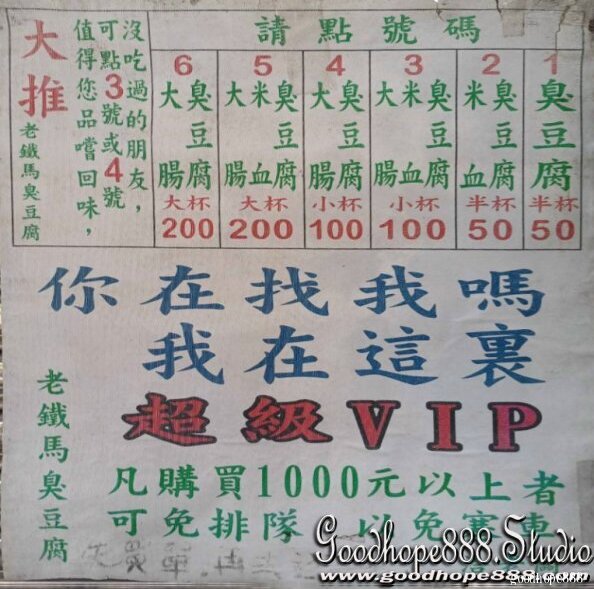 請點號碼
1 臭豆腐 半杯 50
2 臭豆腐 米血 半杯 50
3 臭豆腐 米血 大腸 小杯 100
4 臭豆腐 大腸 小杯 100
5 臭豆腐 米血 大腸 大杯 200
6 臭豆腐 大腸 大杯 200
沒吃過的朋友，
可點3號或4號
值得您品嚐回味，
大推
老鐵馬臭豆腐
你在找我嗎
我在這裏
超級VIP
老鐵馬臭豆腐
凡購買1000元以上者
可免排隊 以免塞車
Goodhope888.Studio
www.goodhope888.com
goodhope888